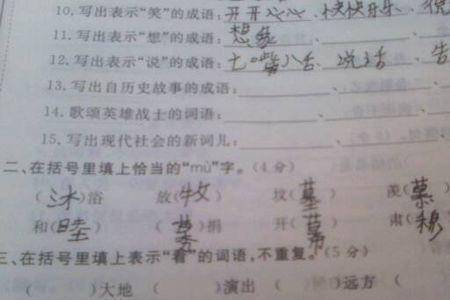 10.写出表示“笑”的成语:开开心心、快快乐乐、
11.写出表示“想”的成语:想象、
12.写出表示“说”的成语:七嘴八舌、说话、告
13.写出自历史故事的成语:、
14.歌颂英雄战士的词语:、
15.写出现代社会的新词儿:、
二、在括号里填上恰当的“mù”字。(4分)
(沐)浴 放(牧) 坟(墓) 羡(慕)
和(睦) (募)捐 开(幕) 肃(穆)
三、在括号里填上表示“看”的词语,不重复。(5分)
( )大地 ( )演出 ( )远方 (